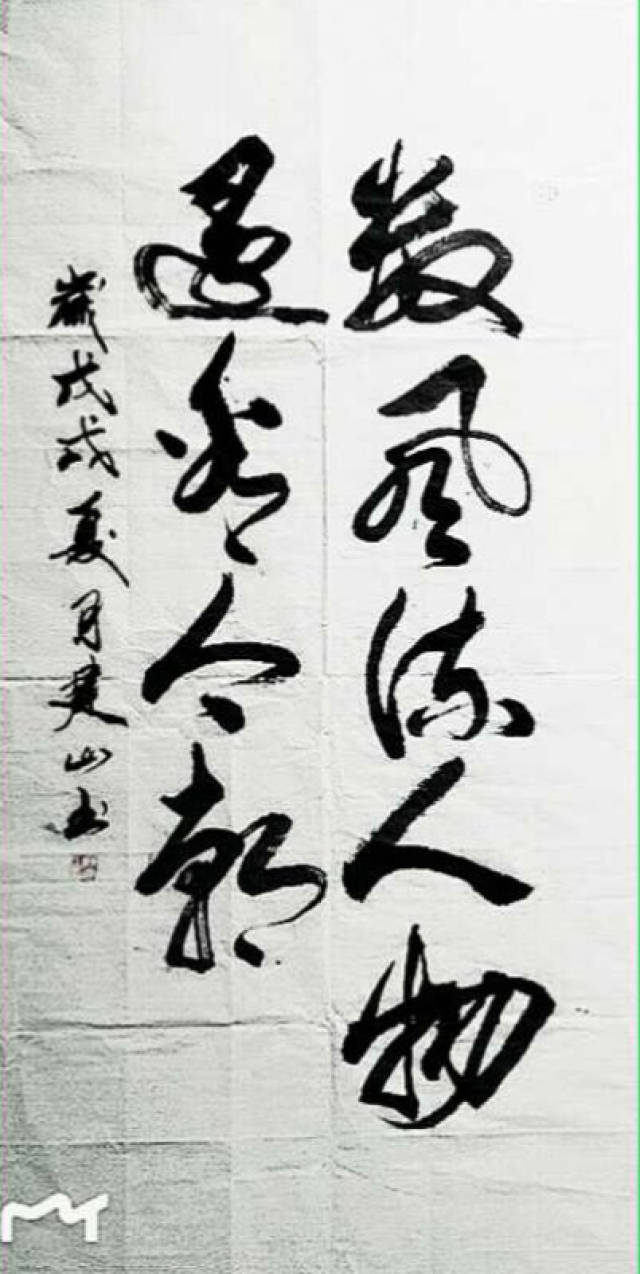 数风流人物
还看今朝
岁戊戌夏月建山书